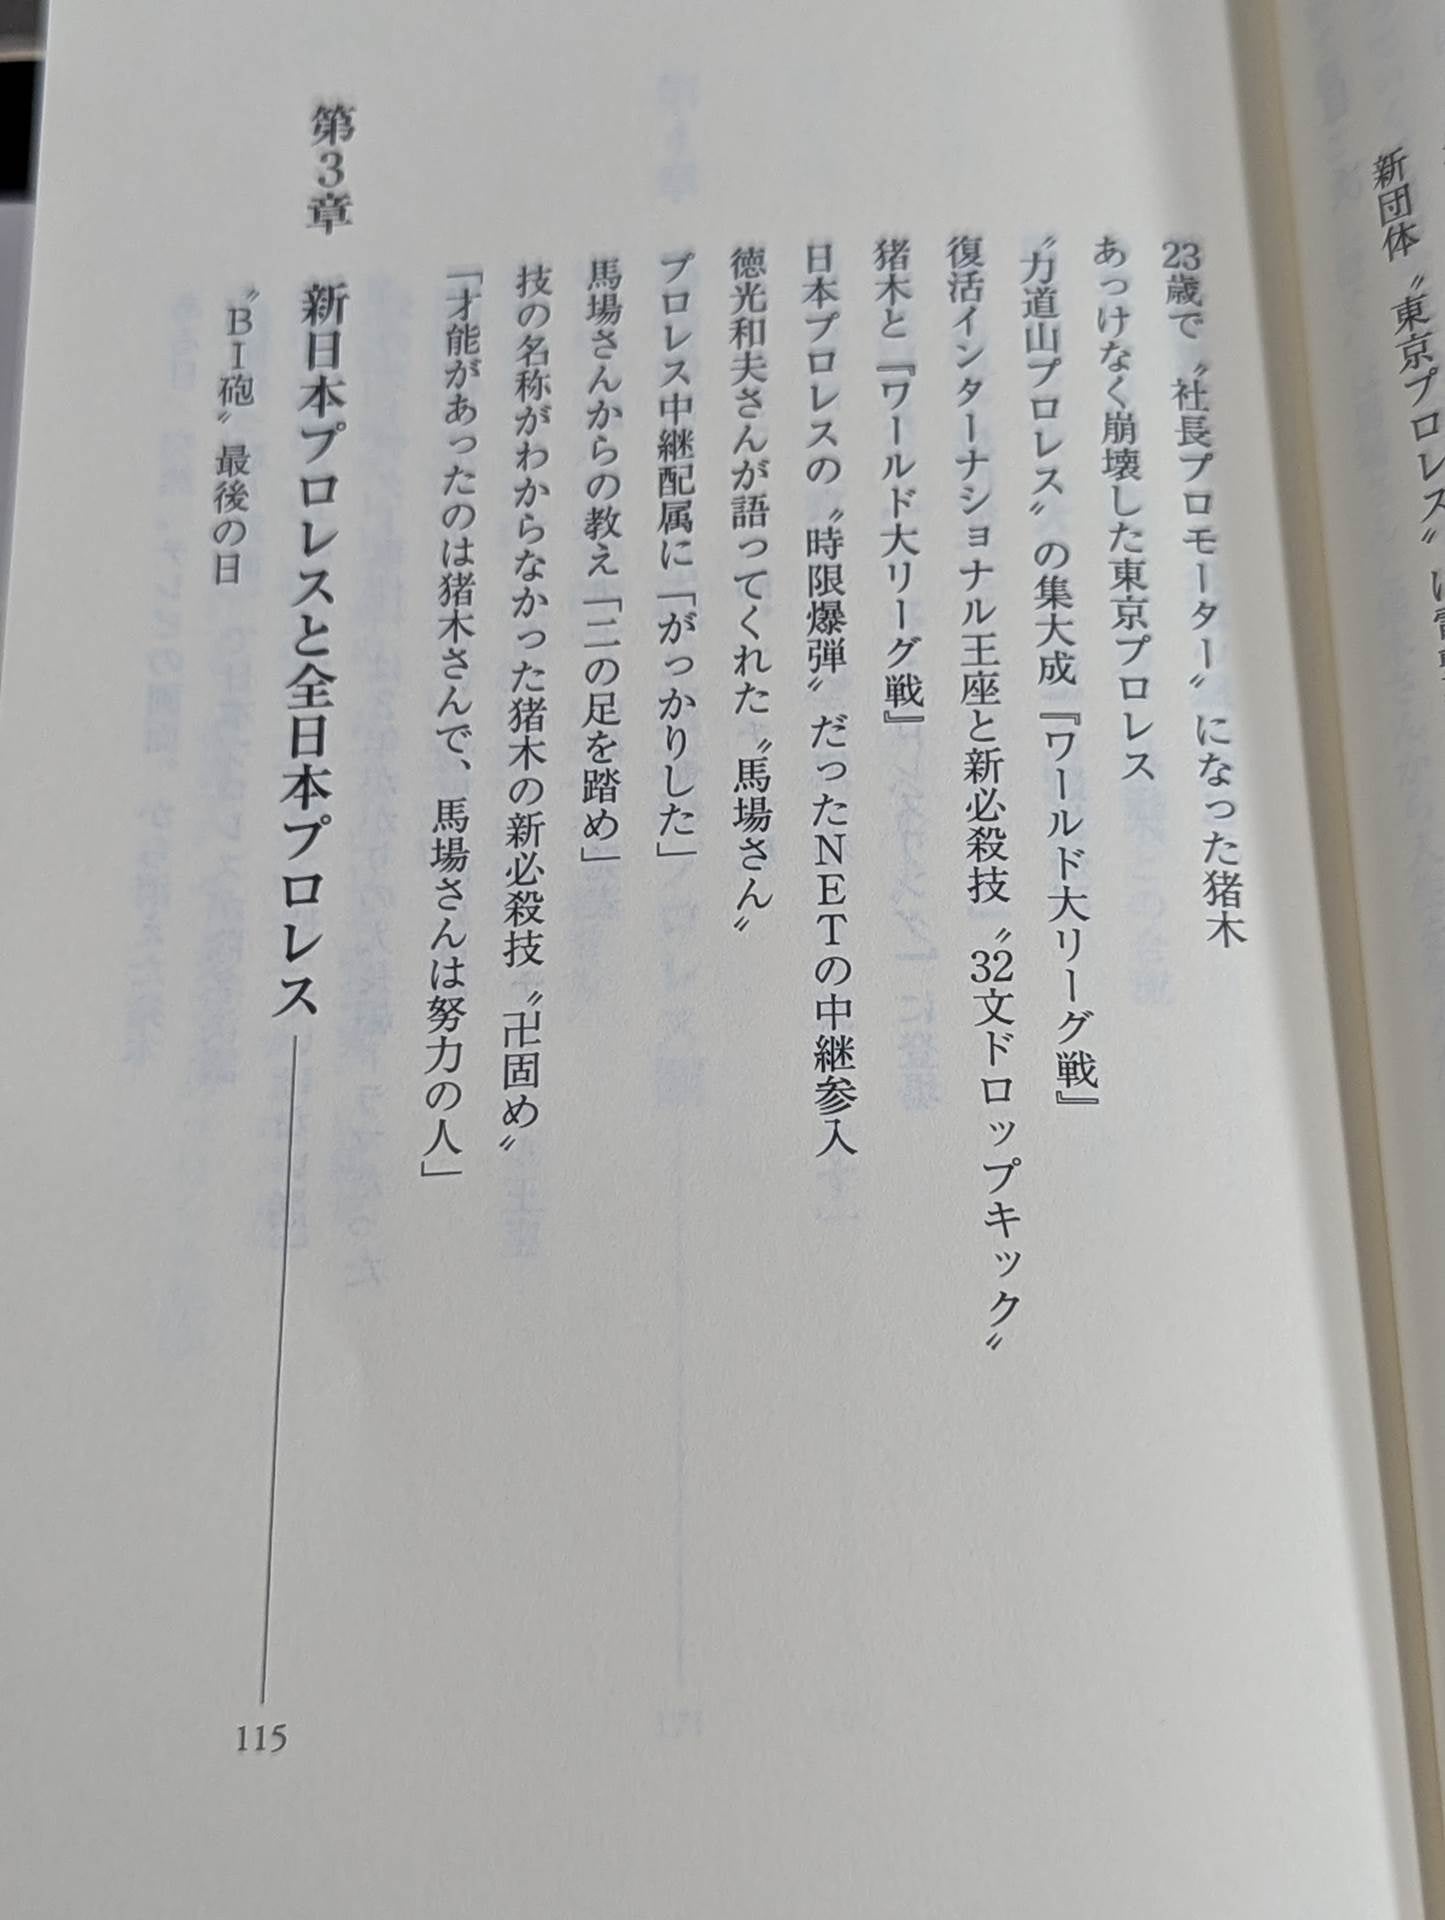 新団体〝東京プロレス〟は
23歳で〝社長プロモーター〟になった猪木
あっけなく崩壊した東京プロレス
〝力道山プロレス〟の集大成『ワールド大リーグ戦』
復活インターナショナル王座と新必殺技〝32文ドロップキック〟
猪木と『ワールド大リーグ戦』
日本プロレスの〝時限爆弾〟だったNETの中継参入
徳光和夫さんが語ってくれた〝馬場さん〟
プロレス中継配属に「がっかりした」
馬場さんからの教え「二の足を踏め」
技の名称がわからなかった猪木の新必殺技〝卍固め〟
「才能があったのは猪木さんで、馬場さんは努力の人」
第3章 新日本プロレスと全日本プロレス 115
〝BI砲〟最後の日